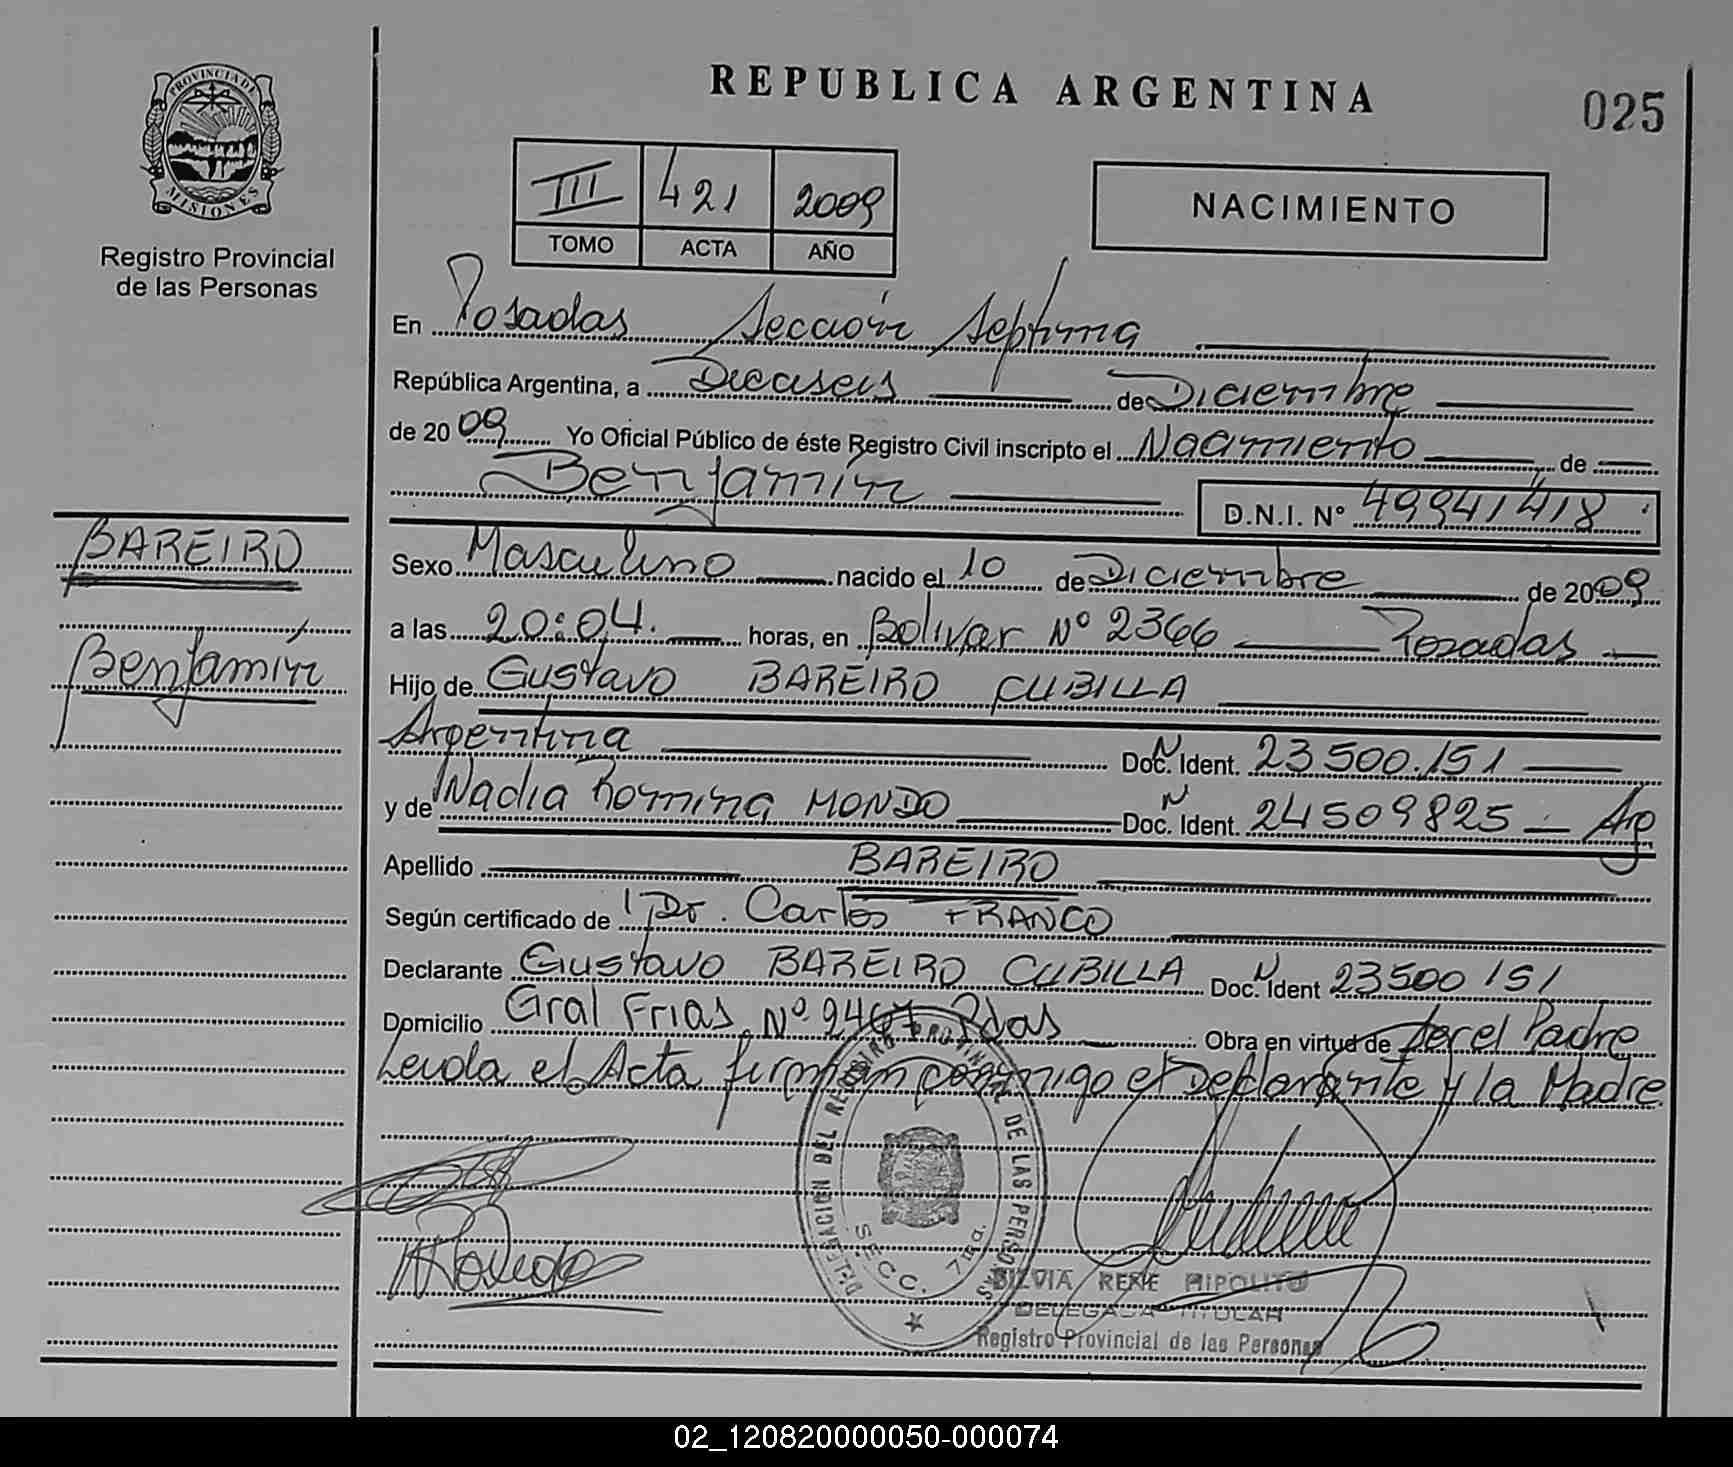 PROVINCIA DE
MISIONES
Registro Provincial
de las Personas
REPUBLICA ARGENTINA
025
III 421 2009
TOMO ACTA AÑO
NACIMIENTO
En Posadas Sección Septima
República Argentina, a Dieciseis de Diciembre
de 2009 Yo Oficial Público de éste Registro Civil inscripto el Nacimiento de
Benjamín
D.N.I. N° 49941418
BAREIRO
Benjamín
Sexo Masculino nacido el 10 de Diciembre de 2009
a las 20:04. horas, en Bolívar N° 2366 Posadas
Hijo de Gustavo BAREIRO CUBILLA
Argentina Doc. Ident. 23500.151
y de Nadia Romina MONDO Doc. Ident. 24509825 Arg
Apellido BAREIRO
Según certificado de Dr. Carlos FRANCO
Declarante Gustavo BAREIRO CUBILLA Doc. Ident 23500151
Domicilio Gral Frias N° Pdas Obra en virtud de ser el Padre
Leida el Acta firman conmigo el Declarante y la Madre
DELEGACION DEL REGISTRO PROVINCIAL DE LAS PERSONAS
SECC. 7ma.
SILVIA RENE HIPOLITO
DELEGADA TITULAR
Registro Provincial de las Personas
02_120820000050-000074